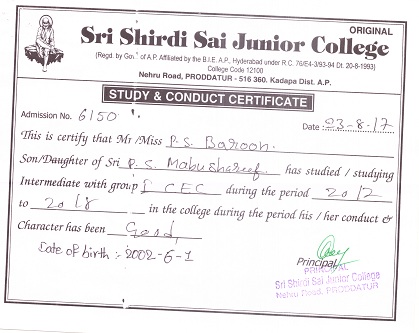 ORIGINAL
Sri Shirdi Sai Junior College
(Regd. by Gov. of A.P. Affiliated by the B.I.E. A.P., Hyderabad under R.C. 76/E4-3/93-94 Dt. 20-8-1993)
College Code 12100
Nehru Road, PRODDATUR - 516 360. Kadapa Dist. A.P.
STUDY & CONDUCT CERTIFICATE
Admission No. 6150 Date : 23-8-17
This is certify that Mr /Miss P. S. Baroon.
Son/Daughter of Sri P. S. Mabushareef. has studied / studying
Intermediate with group I CEC during the period 2012
to 2018 in the college during the period his / her conduct &
Character has been Good
Date of birth :- 2002-6-1
Principal
PRINCIPAL
Sri Shirdi Sai Junior College
Nehru Road, PRODDATUR